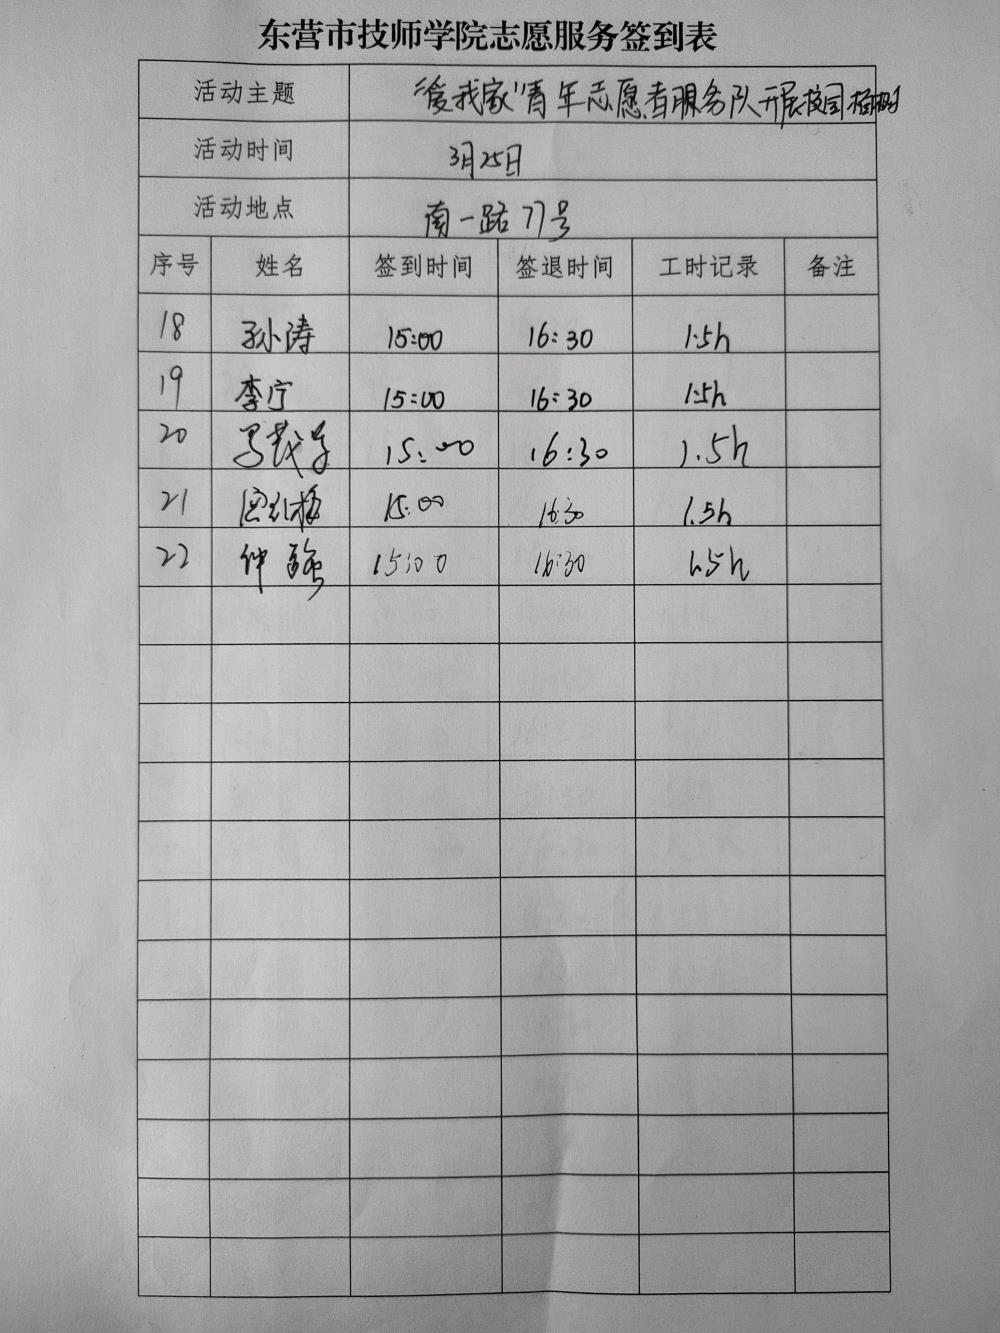 东营市技师学院志愿服务签到表
活动主题 “爱我家”青年志愿者服务队开展校园植树
活动时间 3月25日
活动地点 南一路77号
序号 姓名 签到时间 签退时间 工时记录 备注
18 孙涛 15:00 16:30 1.5h
19 李宁 15:00 16:30 1.5h
20 15:00 16:30 1.5h
21 15:00 16:30 1.5h
22 15:00 16:30 1.5h